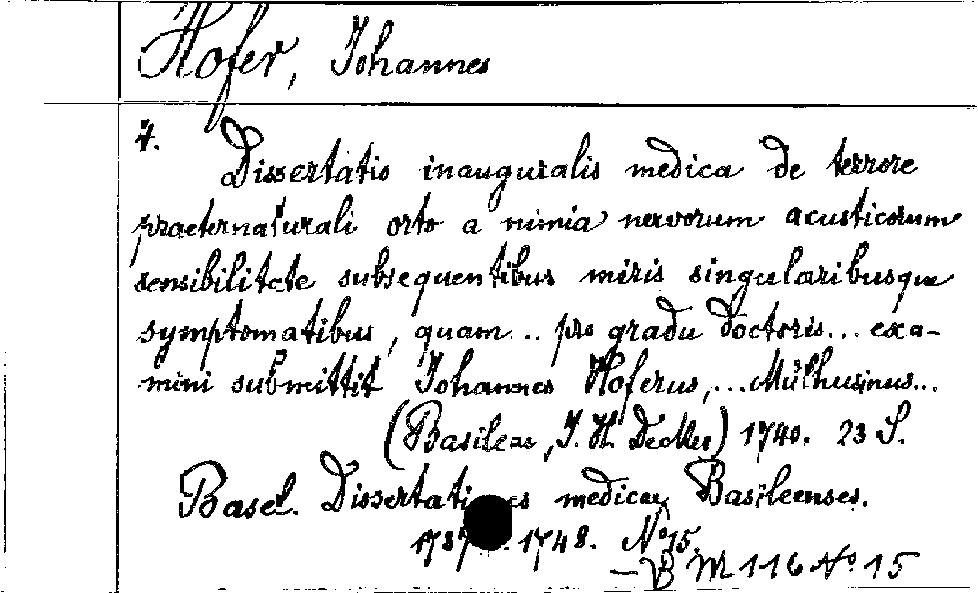 Hofer, Johannes
4.
Dissertatio inauguralis medica de terrore
praeternaturali orto a nimia nervorum acusticorum
sensibilitate subsequentibus miris singularibusque
symptomatibus, quam .. pro gradu doctoris... exa-
mini submittit Johannes Hoferus,... Mülhusinus...
(Basileae, J. H. Decker) 1740. 23 S.
Basel. Dissertationes medicae Basileenses.
1737 1748. No 15.
- B M 116 No 15